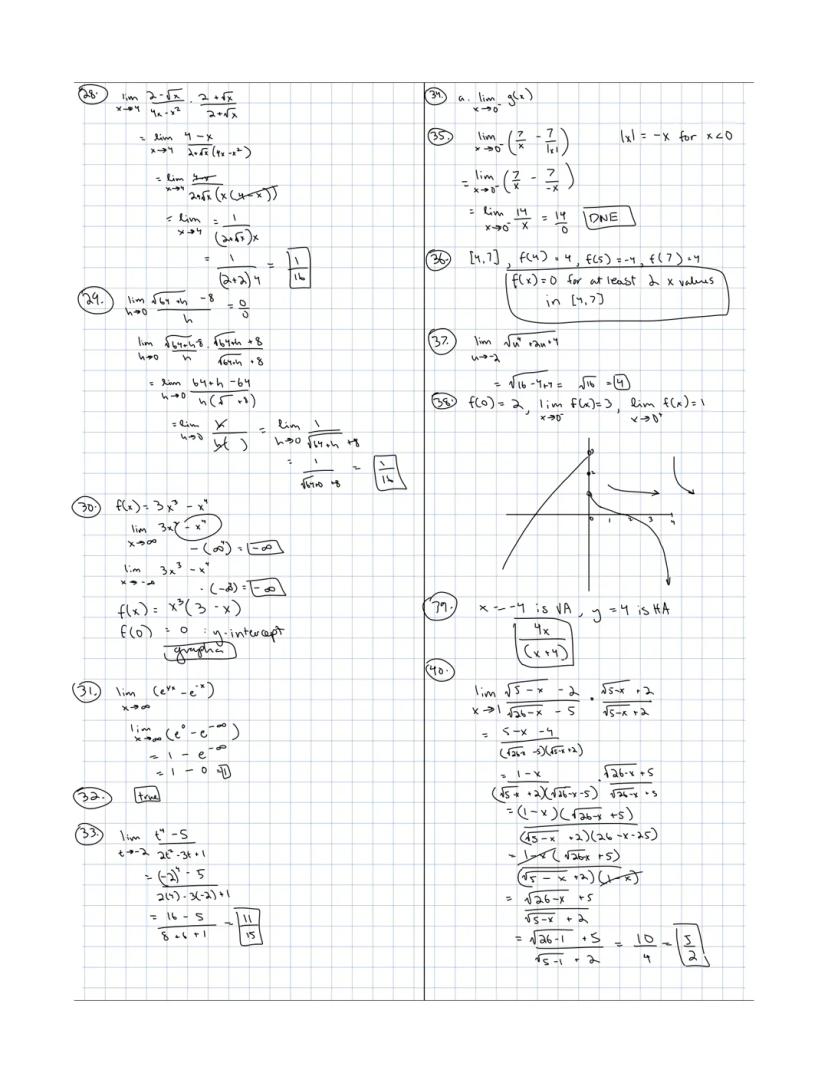 28. lim x→4 (2-√x)/(4x-x²) · (2+√x)/(2+√x)
= lim x→4 (4-x)/(2+√x(4x-x²))
= lim x→4 (4-x)/(2+√x(x(4-x)))
= lim x→4 = 1/((2+√x)x)
= 1/((2+2)4) = 1/16
29. lim h→0 (√64+h -8)/h = 0/0
lim h→0 (√64+h -8)/h · (√64+h +8)/(√64+h +8)
= lim h→0 (64+h-64)/(h(√ +8))
= lim h→0 h/(h( )) = lim h→0 1/(√64+h +8)
= 1/(√64+0 +8) = 1/16
30. f(x) = 3x³ - x⁴
lim x→∞ 3x³ - x⁴
-(∞⁴) = -∞
lim x→-∞ 3x³ - x⁴
-(-∞) = -∞
f(x) = x³(3-x)
f(0) = 0 : y-intercept
31. lim x→∞ (e^(1/x) - e^(-x))
lim x→∞ (e⁰ - e^(-∞))
= 1 - e^(-∞)
= 1 - 0 = 1
32. true
33. lim t→-2 (t⁴-5)/(2t²-3t+1)
= ((-2)⁴-5)/(2(4)-3(-2)+1)
= (16-5)/(8+6+1) = 11/15
34. a. lim x→0⁻ g(x)
35. lim x→0⁻ (7/x - 7/|x|) |x| = -x for x<0
= lim x→0⁻ (7/x - 7/-x)
= lim x→0⁻ 14/x = 14/0 DNE
36. [4,7], f(4) = 4, f(5) = -4, f(7) = 4
f(x)=0 for at least 2 x values
in [4,7]
37. lim u→-2 √u⁴+2u+4
= √16-4+4 = √16 = 4
38. f(0) = 2, lim x→0⁻ f(x)=3, lim x→0⁺ f(x)=1
3
2
0 1 2 3 4
39. x=-4 is VA, y=4 is HA
4x/(x+4)
40.
lim x→1 (√5-x - 2)/(√26-x - 5) · (√5-x + 2)/(√5-x + 2)
= (5-x-4)/((√26-x -5)(√5-x +2))
= (1-x)/((√5-x +2)(√26-x -5)) · (√26-x +5)/(√26-x +5)
= (1-x)(√26-x +5)/((√5-x +2)(26-x-25))
= (1-x)(√26-x +5)/((√5-x +2)(1-x))
= (√26-x +5)/(√5-x +2)
= (√26-1 +5)/(√5-1 +2) = 10/4 = 5/2